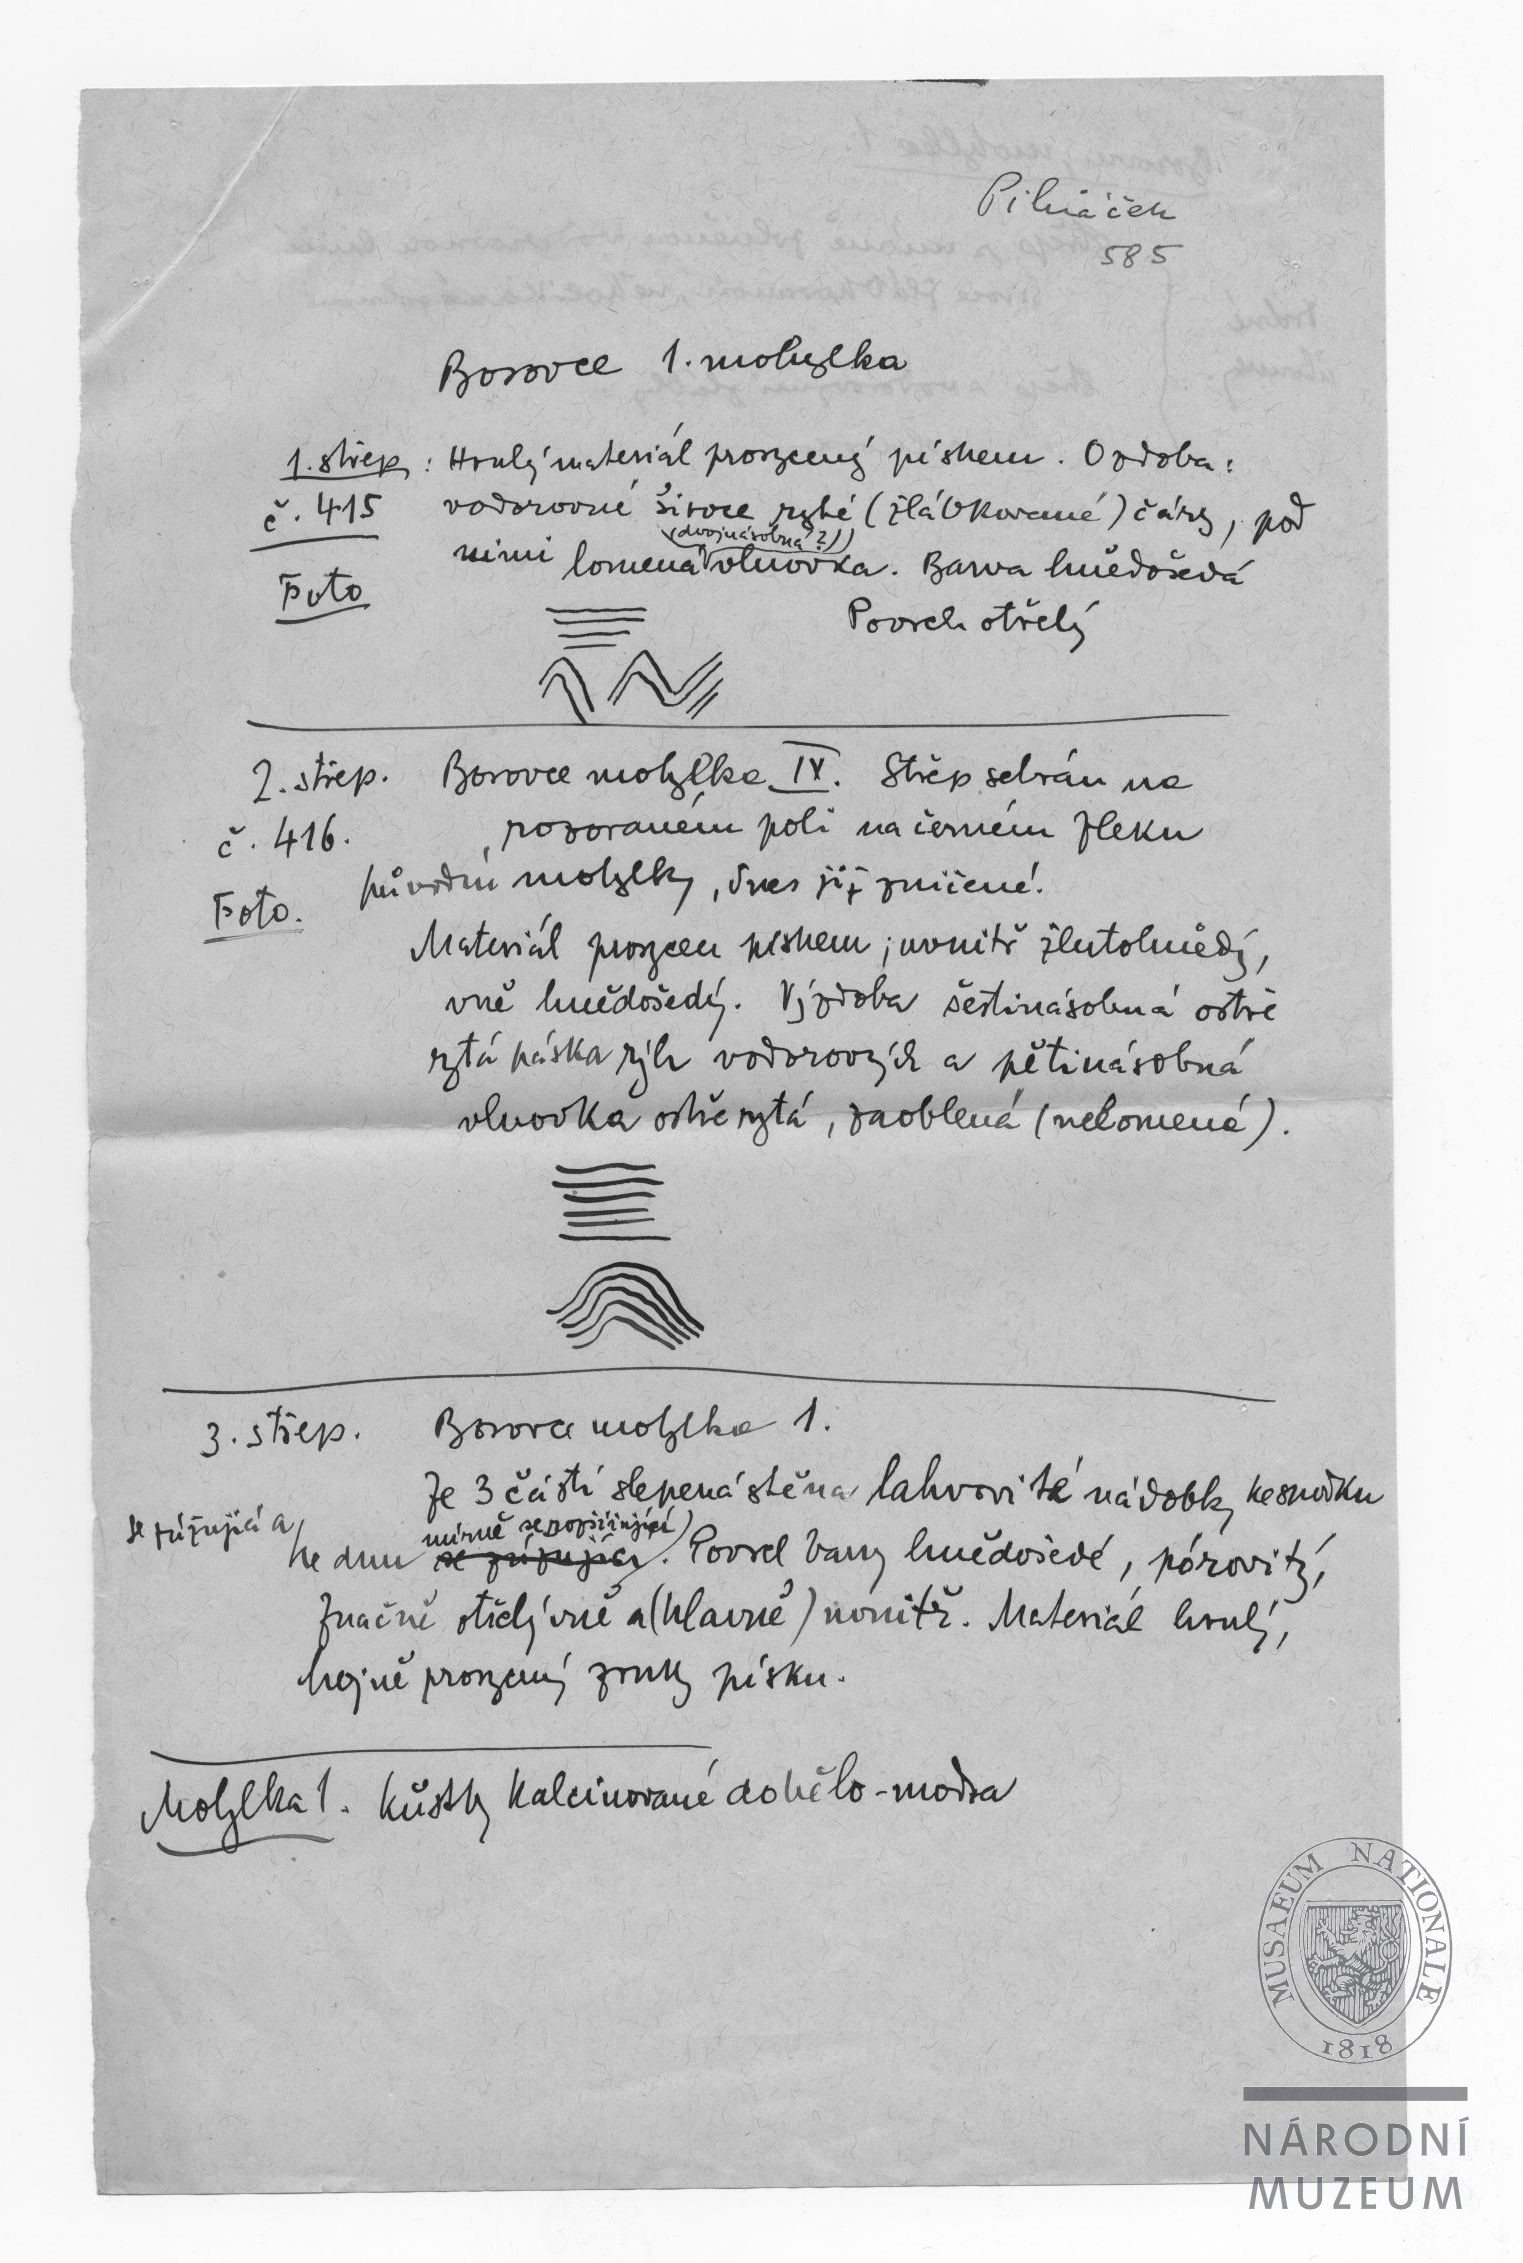 Pilnáček
585
Borovce 1. mohylka
1. střep : Hrubý materiál prosycený pískem. Ozdoba:
č. 415 vodorovné široce ryté (žlábkované) čáry, pod
(dvojnásobná?)
nimi lomená vlnovka. Barva hnědošedá
Foto
Povrch otřelý
2. střep. Borovce mohylka IV. Střep sebrán na
č. 416. rozoraném poli na černém fleku
Foto. původní mohylky, dnes již zničené.
Materiál prosycen pískem; uvnitř žlutohnědý,
vně hnědošedý. Výzdoba šestinásobná ostře
rytá páska rýh vodorovných a pětinásobná
vlnovka ostře rytá, zaoblená (nelomená).
3. střep. Borovce mohylka 1.
Ze 3 částí slepená stěna lahvovité nádobky ke spodku
se zúžující a
mírně se rozšiřující
ke dnu se zúžující. Povrch barvy hnědošedé, pórovitý,
značně otřelý vně a (hlavně) uvnitř. Materiál hrubý,
hojně prosycený zrnky písku.
Mohylka 1. Kůstky kalcinované do bělo-modra
MUSAEUM NATIONALE
1818
NÁRODNÍ
MUZEUM